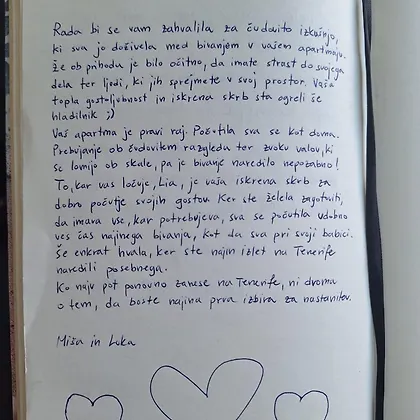 Rada bi se vam zahvalila za čudovito izkušnjo,
ki sva jo doživela med bivanjem v vašem apartmaju.
Že ob prihodu je bilo očitno, da imate strast do svojega
dela ter ljudi, ki jih sprejmete v svoj prostor. Vaša
topla gostoljubnost in iskrena skrb sta ogreli še
hladilnik ;)
Vaš apartma je pravi raj. Počutila sva se kot doma.
Prebujanje ob čudovitem razgledu ter zvoku valov, ki
se lomijo ob skale, pa je bivanje naredilo nepozabno!
To, kar vas ločuje, Lia, je vaša iskrena skrb za
dobro počutje svojih gostov. Ker ste želela zagotoviti,
da imava vse, kar potrebujeva, sva se počutila udobno
ves čas najinega bivanja, kot da sva pri svoji babici.
Še enkrat hvala, ker ste najin izlet na Tenerife
naredili posebnega.
Ko naju pot ponovno zanese na Tenerife, ni dvoma
o tem, da boste najina prva izbira za nastanitev.
Miša in Luka